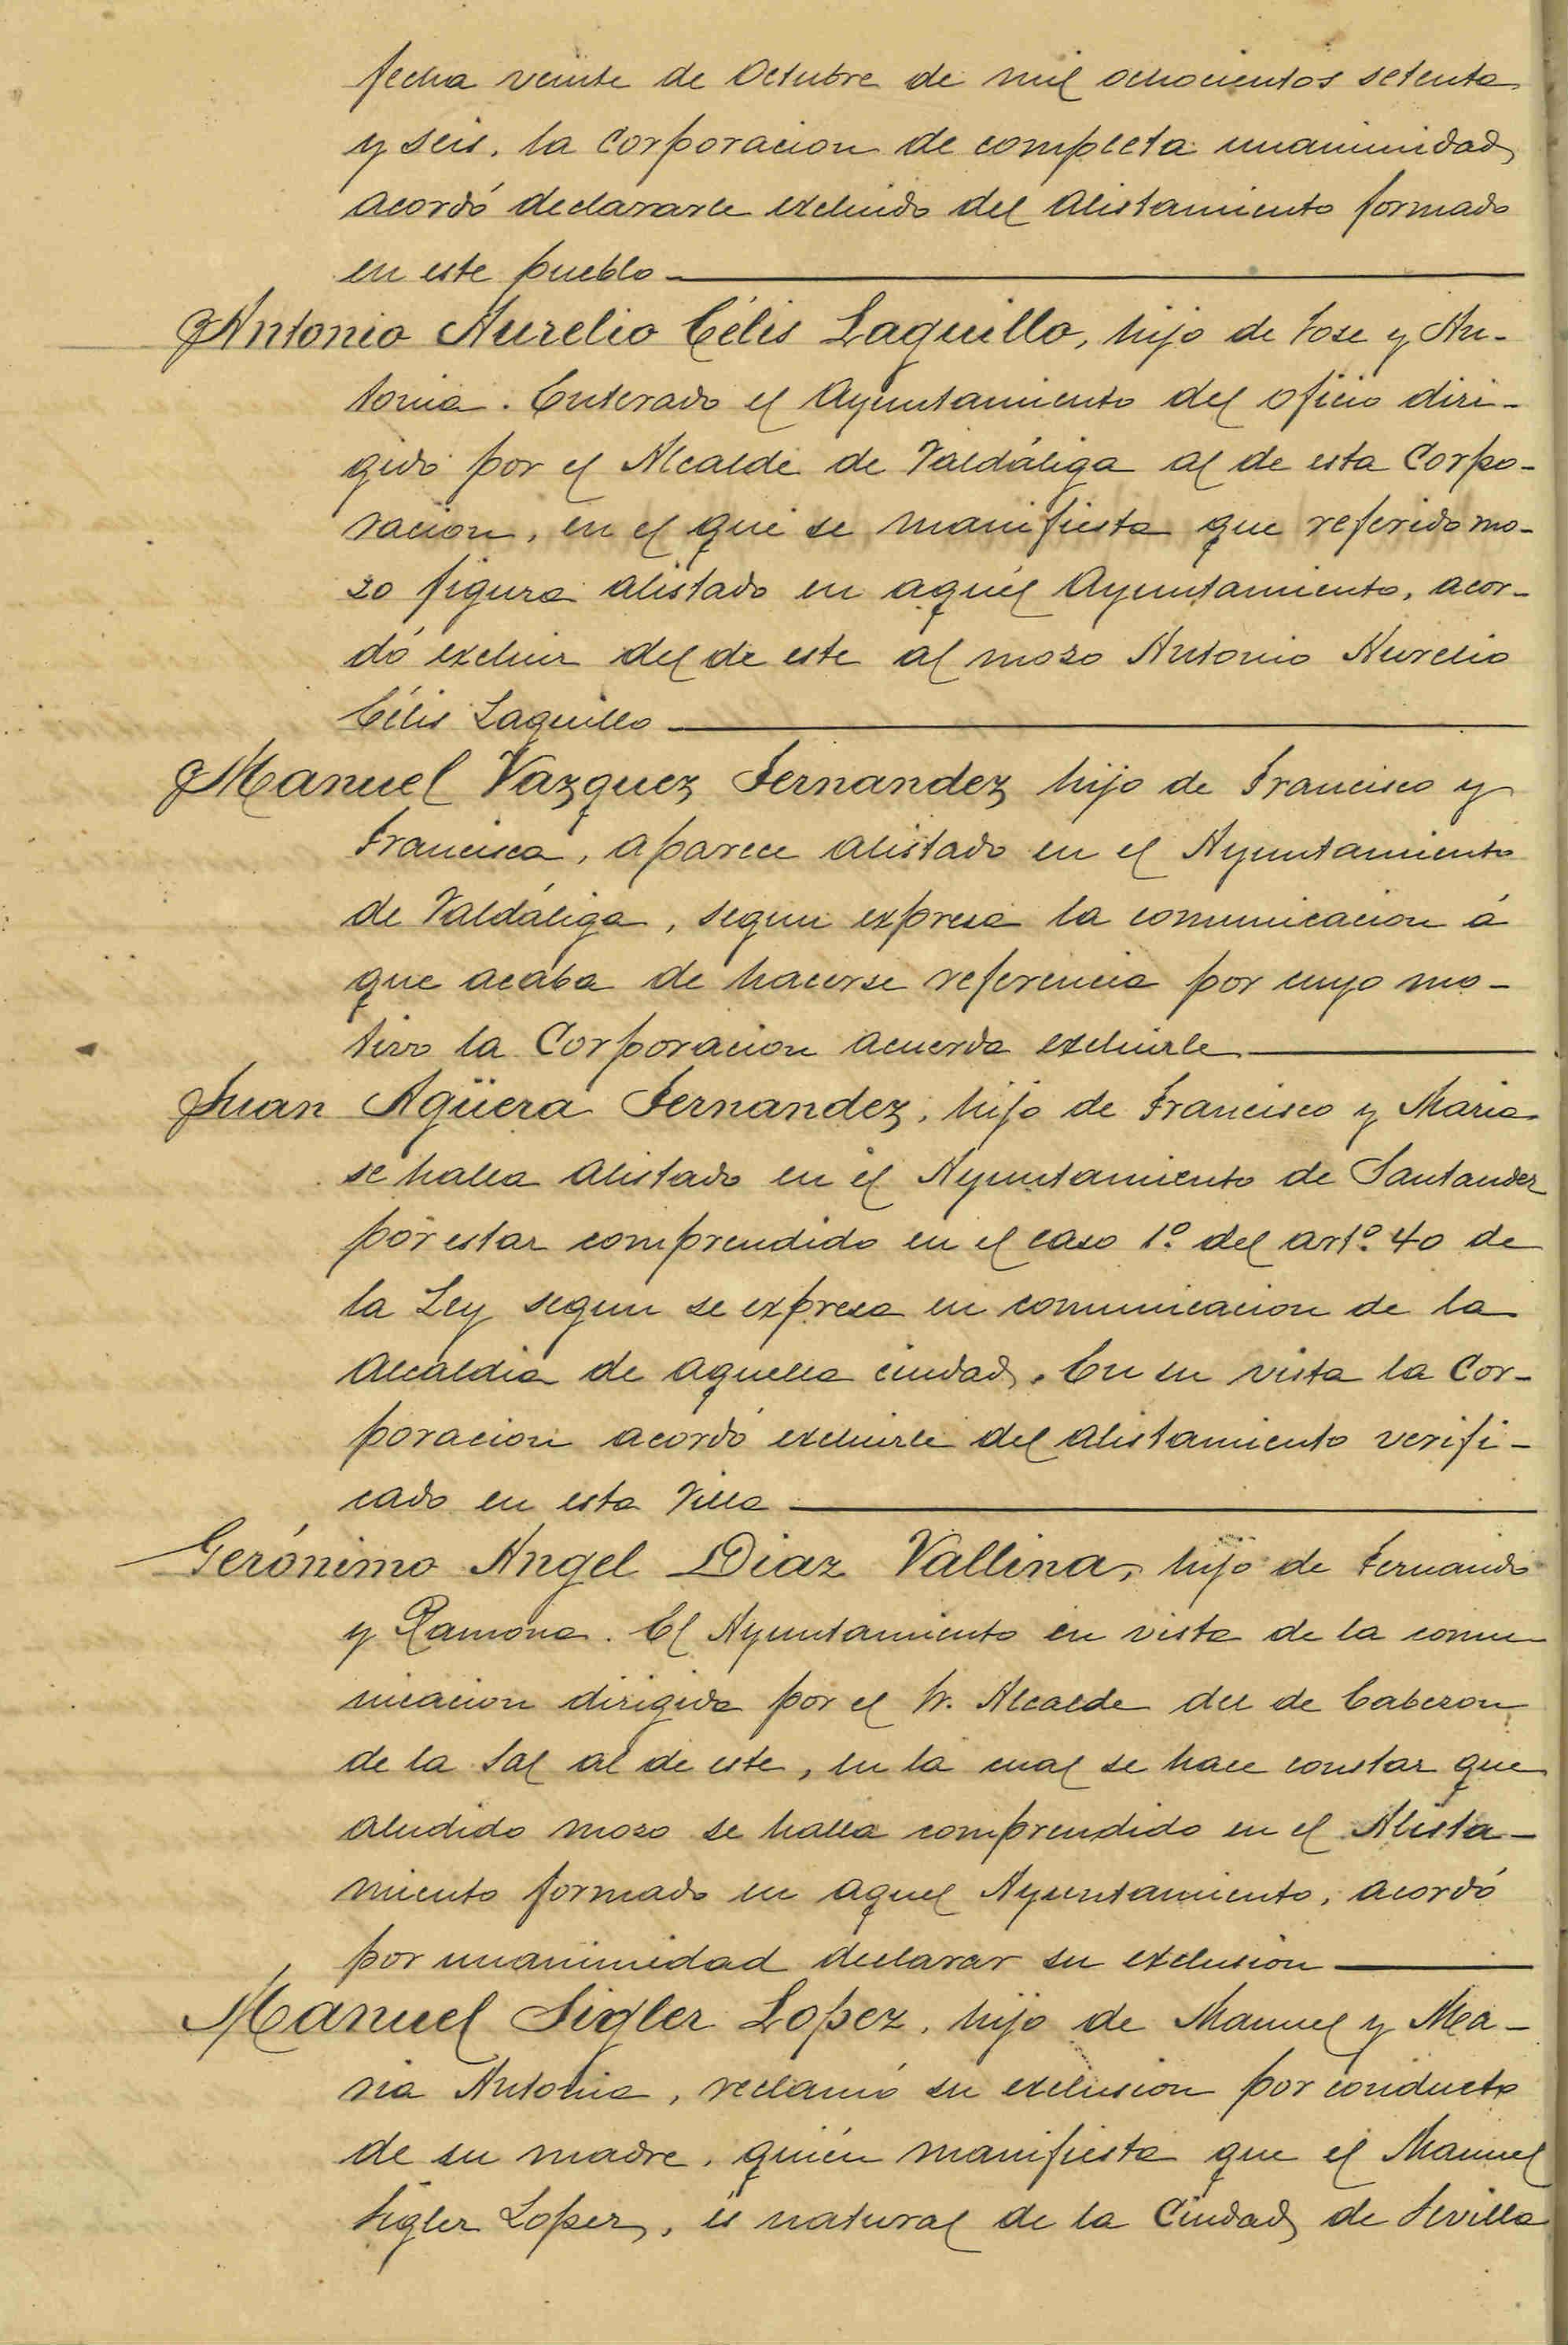 fecha veinte de Octubre de mil ochocientos setenta
y seis, la Corporacion de completa unanimidad
acordó declararle excluido del alistamiento formado
en este pueblo
Antonio Aurelio Célis Laguillo, hijo de Jose y An-
tonia. Enterado el Ayuntamiento del oficio diri-
gido por el Alcalde de Valdáliga al de esta Corpo-
racion, en el que se manifiesta que referido mo-
zo figura alistado en aquel Ayuntamiento, acor-
dó excluir del de este al mozo Antonio Aurelio
Célis Laguillo
Manuel Vazquez Fernandez hijo de Francisco y
Francisca, aparece alistado en el Ayuntamiento
de Valdáliga, segun expresa la comunicacion á
que acaba de hacerse referencia por cuyo mo-
tivo la Corporacion acuerda excluirle
Juan Agüera Fernandez, hijo de Francisco y Maria
se halla alistado en el Ayuntamiento de Santander
por estar comprendido en el caso 1º del artº 40 de
la Ley segun se expresa en comunicacion de la
Alcaldia de aquella ciudad. En su vista la Cor-
poracion acordó excluirle del alistamiento verifi-
cado en esta Villa
Gerónimo Angel Diaz Vallina, hijo de Fernando
y Ramona. El Ayuntamiento en vista de la comu
nicacion dirigida por el Sr. Alcalde del de Cabezon
de la Sal al de este, en la cual se hace constar que
aludido mozo se halla comprendido en el Alista-
miento formado en aquel Ayuntamiento, acordó
por unanimidad declarar su exclusion
Manuel Sigler Lopez, hijo de Manuel y Ma-
ria Antonia, reclamó su exclusion por conducto
de su madre, quién manifiesta que el Manuel
Sigler Lopez, es natural de la Ciudad de Sevilla